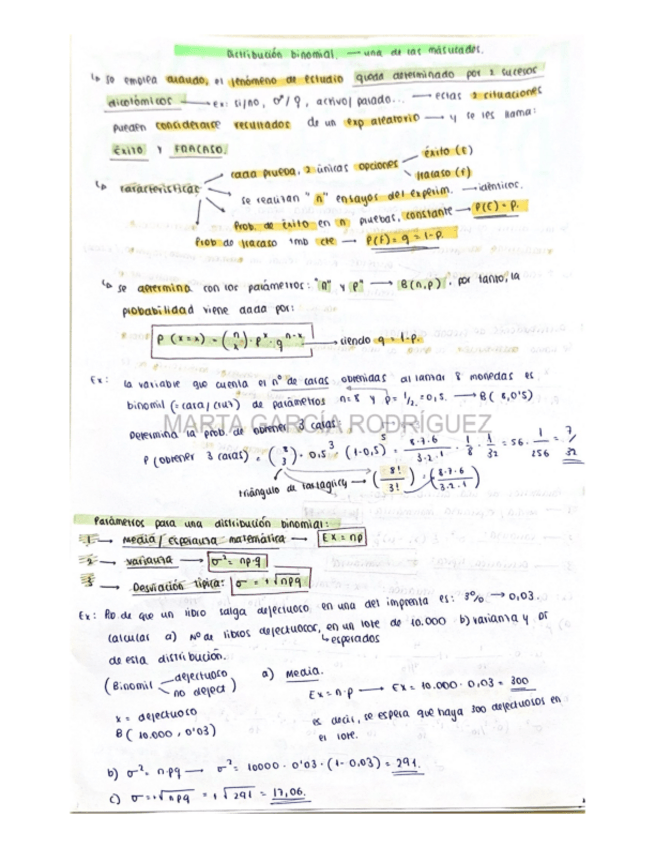 Distribución binomial. — una de las más usadas.
↳ se emplea cuando, el fenómeno de estudio queda determinado por 2 sucesos
dicotómicos → ex: si/no, ♂/♀, activo/parado... → estas 2 situaciones
pueden considerarse resultados de un exp aleatorio → y se les llama:
ÉXITO Y FRACASO.
↳ características
cada prueba, 2 únicas opciones
éxito (E)
fracaso (F)
se realizan "n" ensayos del experim. → idénticos.
Prob. de éxito en n pruebas, constante → P(E) = p.
Prob de fracaso tmb cte → P(F) = q = 1-p.
↳ se determina con los parámetros: "n" y p" → B(n,p). por tanto, la
probabilidad viene dada por:
P (x=x) = (n x) · p^x · q^n-x → siendo q = 1-p.
Ex: la variable que cuenta el nº de caras obtenidas al lanzar 8 monedas es
binomil (= cara/cruz) de parámetros n=8 y p = 1/2 = 0,5. → B( 8, 0'5)
MARTA GARCÍA RODRÍGUEZ
Determina la prob. de obtener 3 caras:
P (obtener 3 caras) = (8 3) · 0,5^3 · (1-0,5)^5 = 8·7·6/3·2·1 · 1/8 · 1/32 = 56 · 1/256 = 7/32
Triángulo de → (8!/3!) = (8·7·6/3·2·1)
Parámetros para una distribución binomial:
1 → Media/ esperanza matemática → EX = np
2 → varianza → σ² = np·q
3 → Desviación típica: σ = +√npq
Ex: Pb de que un libro salga defectuoso en una del imprenta es: 3% → 0,03.
calcular a) Nº de libros defectuosos, en un lote de 10.000 b) varianza y DT
↳ esperados
de esta distribución.
(Binomil defectuoso
no defect)
a) Media.
EX = n·p → EX = 10.000 · 0,03 = 300
x = defectuoso
B ( 10.000, 0'03)
es decir, se espera que haya 300 defectuosos en
el lote.
b) σ² = n·pq → σ² = 10000 · 0'03 · (1- 0,03) = 291.
c) σ = +√npq = +√291 = 17,06.